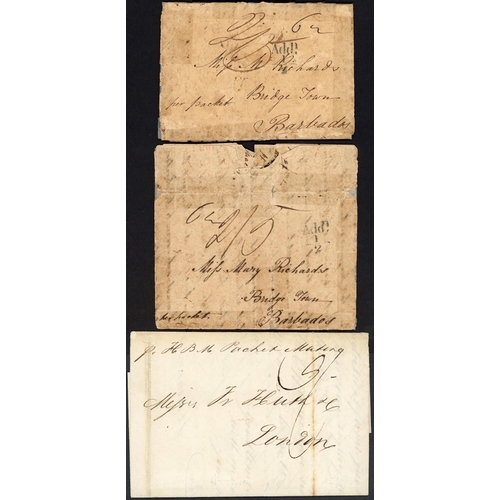 6
Addl
Miss M Richards
per packet Bridge Town
Barbados
2/5
Addl
1/2
Miss Mary Richards
Bridge Town
per packet Barbados
p. H B M Packet Mutiny
Messrs Fr Huth & C
London